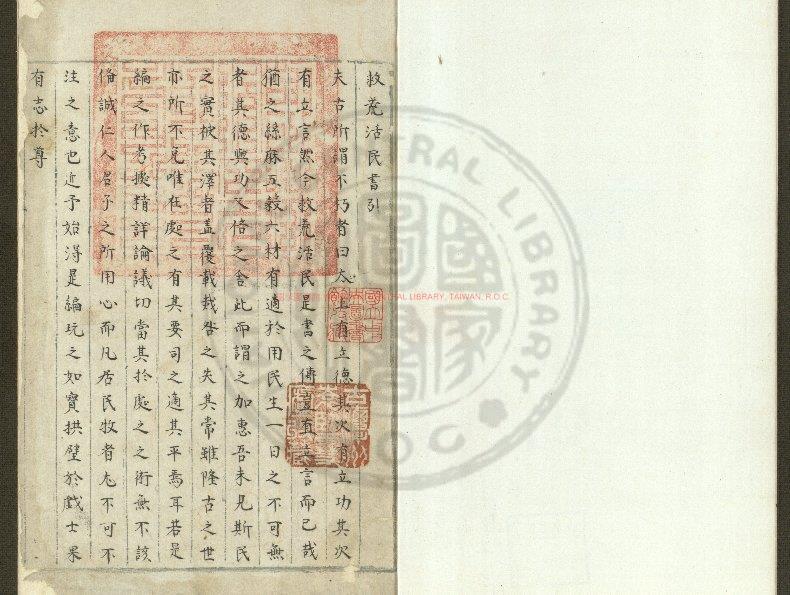 救荒活民書引
夫古所謂不朽者曰太上有立德其次有立功其次
有立言然今救荒活民是書之傳豈直立言而已哉
猶之絲麻五穀六材有適於用民生一日之不可無
者其德與功又倍之舍此而謂之加惠吾未見斯民
之實被其澤者蓋覆載災咎之失其常雖隆古之世
亦所不免唯在處之有其要司之適其平焉耳若是
編之作考據精詳論議切當其於處之之術無不該
備誠仁人君子之所用心而凡居民牧者尤不可不
注之意也近予始得是編玩之如寶拱璧於戲士果
有志於尊
CENTRAL LIBRARY, TAIWAN, R.O.C
RAL LIBRARY
ROC
國家圖書